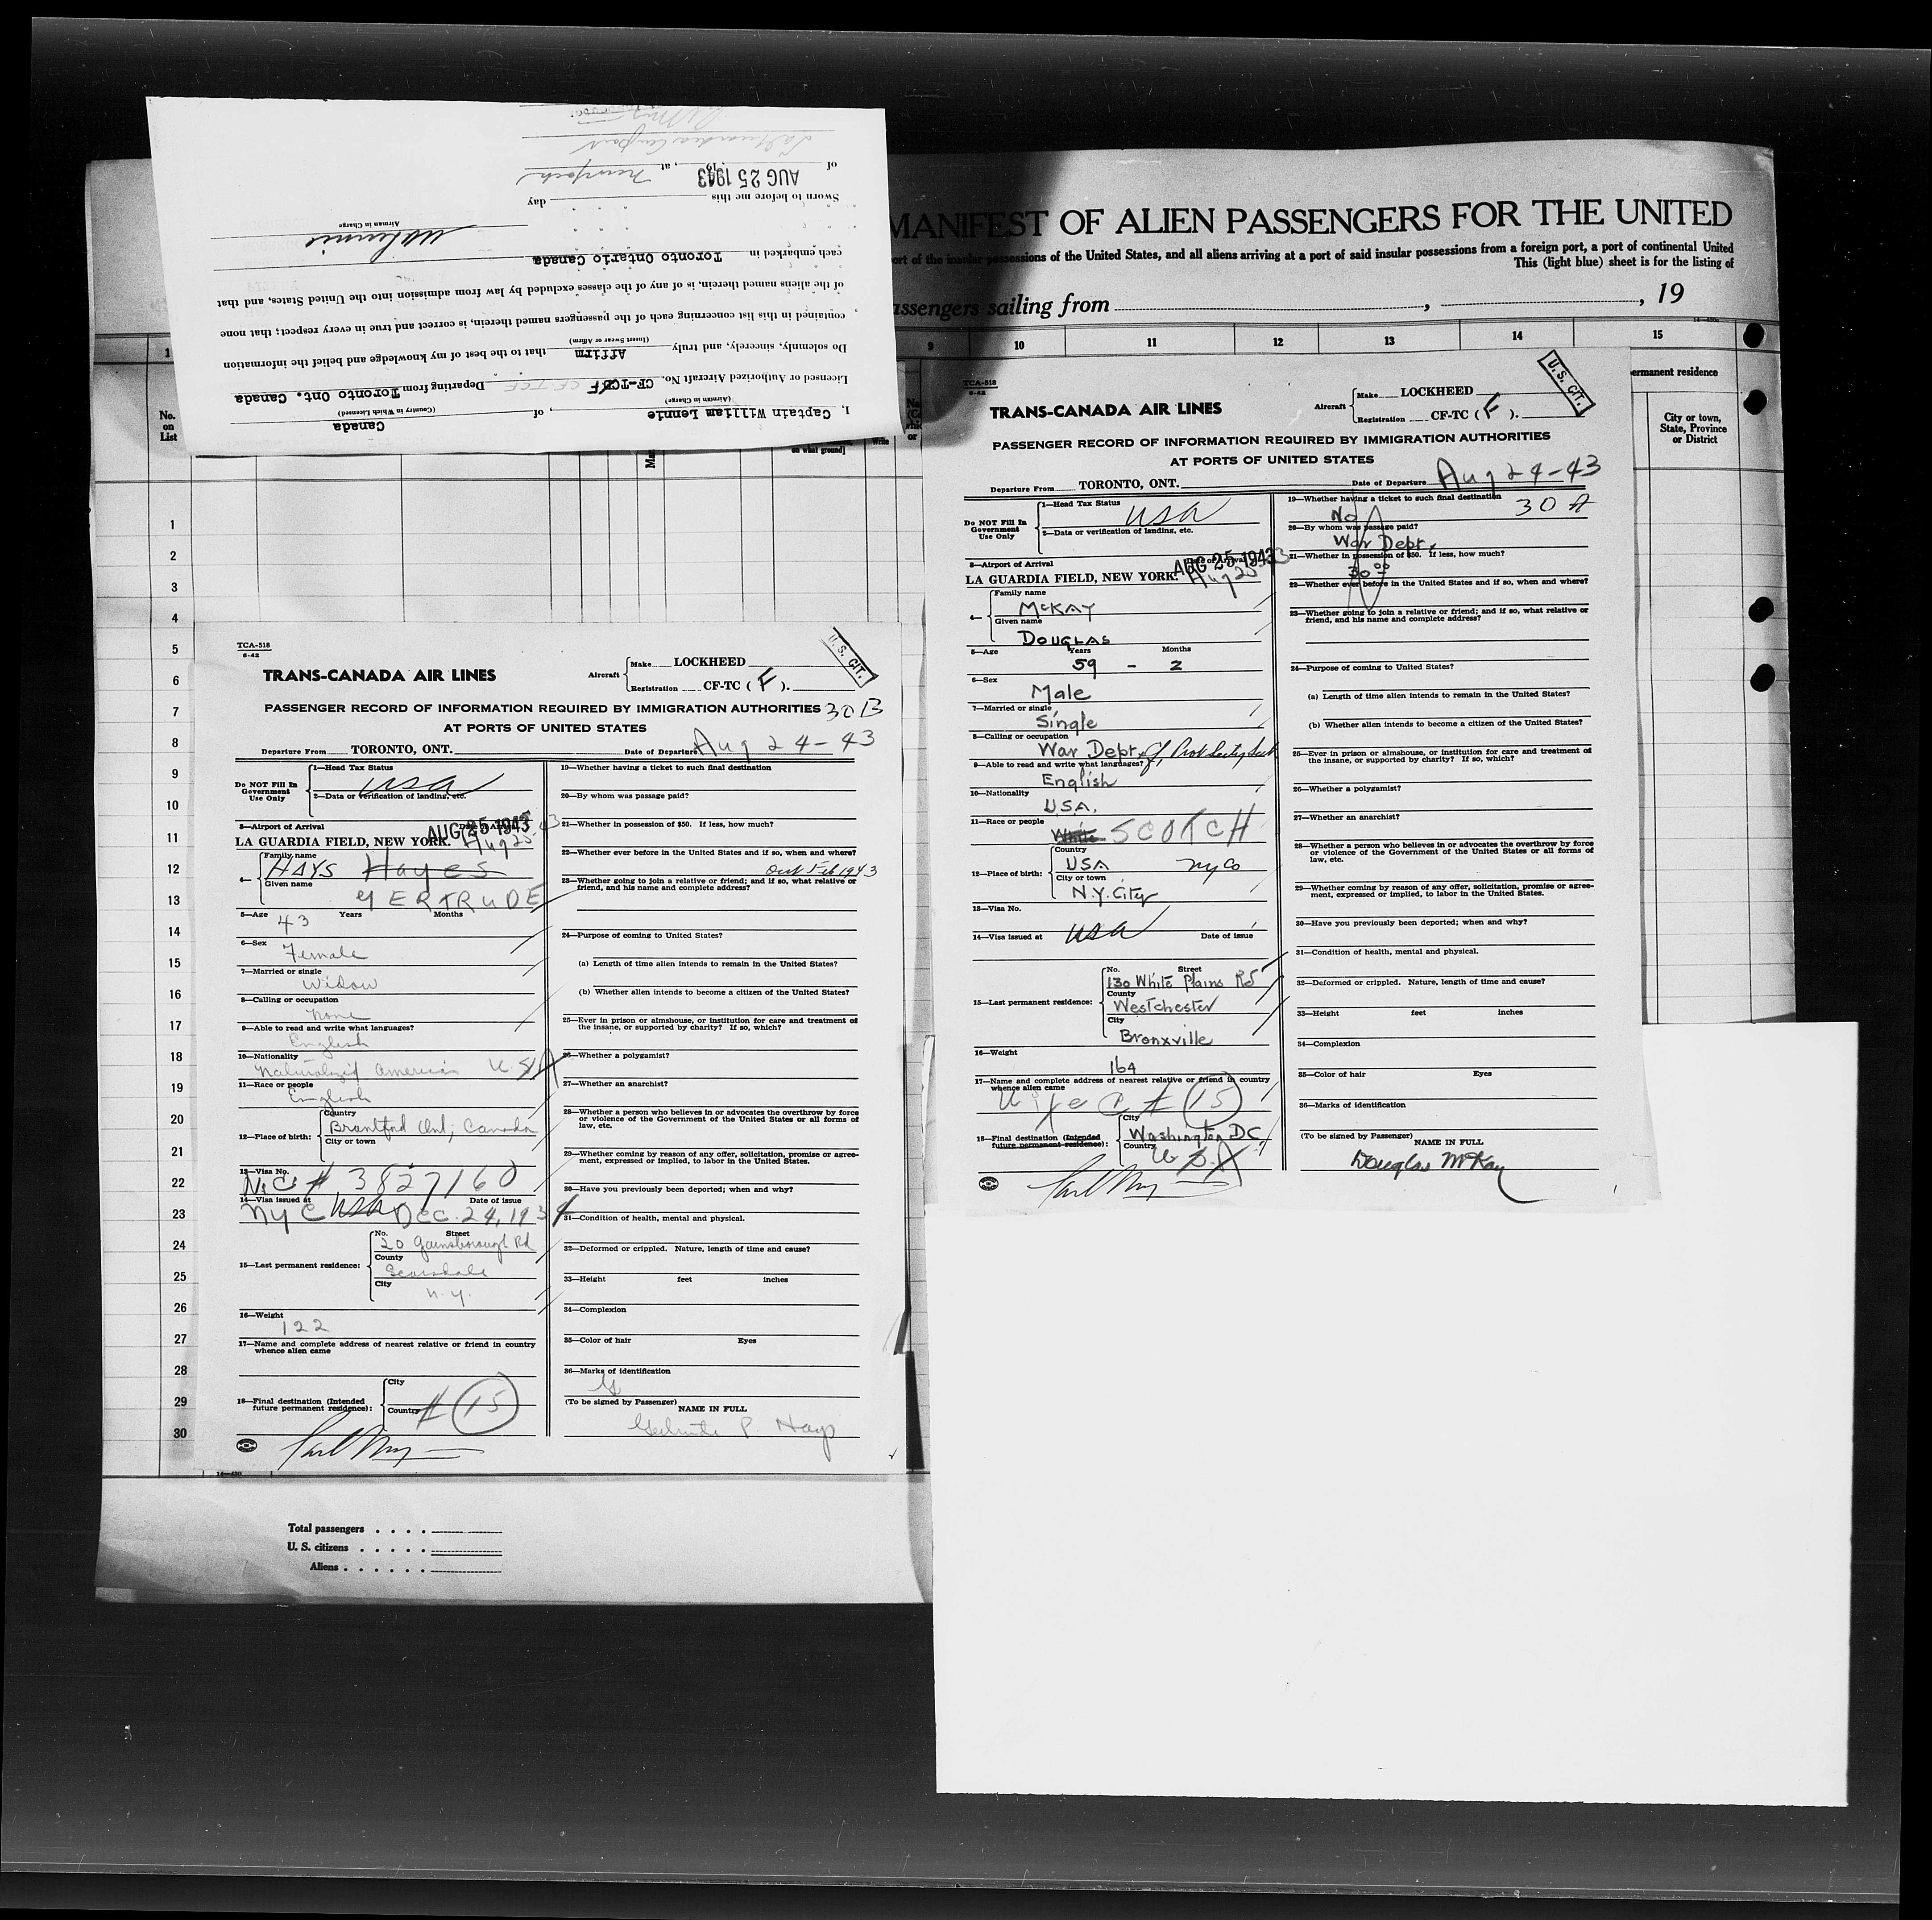 I, Captain William Lennie, of Canada
(Airman in Charge) (Country in Which Licensed)
Licensed or Authorized Aircraft No. CF-TCF Departing from Toronto Ont. Canada
Do solemnly, sincerely, and truly Affirm that to the best of my knowledge and belief the information
(Insert Swear or Affirm)
contained in this list concerning each of the passengers named therein, is correct and true in every respect; that none
of the aliens named therein, is of any of the classes excluded by law from admission into the United States, and that
each embarked in Toronto Ontario Canada
Airman in Charge
Sworn to before me this day
of AUG 25 1943, 19, at New York
La Guardia Airport
MANIFEST OF ALIEN PASSENGERS FOR THE UNITED
ort of the insular possessions of the United States, and all aliens arriving at a port of said insular possessions from a foreign port, a port of continental United
This (light blue) sheet is for the listing of
assengers sailing from , , 19
1 9 10 11 12 13 14 15
No. on List
ermanent residence
City or town, State, Province or District
on what ground]
1
2
3
4
5
6
7
8
9
10
11
12
13
14
15
16
17
18
19
20
21
22
23
24
25
26
27
28
29
30
TCA-518
6-42
U. S. CIT.
TRANS-CANADA AIR LINES
Aircraft Make LOCKHEED
Registration CF-TC ( F ).
PASSENGER RECORD OF INFORMATION REQUIRED BY IMMIGRATION AUTHORITIES 30B
AT PORTS OF UNITED STATES
Departure From TORONTO, ONT. Date of Departure Aug 24-43
Do NOT Fill In Government Use Only
1—Head Tax Status
USA
2—Data or verification of landing, etc.
3—Airport of Arrival
LA GUARDIA FIELD, NEW YORK. AUG 25 1943 Aug 25-43
4— Family name
HAYS Hayes
Given name
GERTRUDE
5—Age 43 Years Months
6—Sex
Female
7—Married or single
Widow
8—Calling or occupation
None
9—Able to read and write what languages?
English
10—Nationality
Naturalized American U.S.A
11—Race or people
English
12—Place of birth: Country
Brantford Ont, Canada
City or town
13—Visa No.
N.C # 3827160
14—Visa issued at Date of issue
NYC USA Dec. 24, 1934
15—Last permanent residence: No. Street
20 Gainsborough Rd
County
Scarsdale
City
N.Y.
16—Weight
122
17—Name and complete address of nearest relative or friend in country whence alien came
18—Final destination (Intended future permanent residence): City
Country # 15
19—Whether having a ticket to such final destination
20—By whom was passage paid?
21—Whether in possession of $50. If less, how much?
22—Whether ever before in the United States and if so, when and where?
out Feb 1943
23—Whether going to join a relative or friend; and if so, what relative or friend, and his name and complete address?
24—Purpose of coming to United States?
(a) Length of time alien intends to remain in the United States?
(b) Whether alien intends to become a citizen of the United States?
25—Ever in prison or almshouse, or institution for care and treatment of the insane, or supported by charity? If so, which?
26—Whether a polygamist?
27—Whether an anarchist?
28—Whether a person who believes in or advocates the overthrow by force or violence of the Government of the United States or all forms of law, etc.
29—Whether coming by reason of any offer, solicitation, promise or agreement, expressed or implied, to labor in the United States.
30—Have you previously been deported; when and why?
31—Condition of health, mental and physical.
32—Deformed or crippled. Nature, length of time and cause?
33—Height feet inches
34—Complexion
35—Color of hair Eyes
36—Marks of identification
(To be signed by Passenger)
NAME IN FULL
Gertrude P. Hays
Total passengers
U. S. citizens
Aliens
TCA-518
6-42
U. S. CIT.
TRANS-CANADA AIR LINES
Aircraft Make LOCKHEED
Registration CF-TC ( F ).
PASSENGER RECORD OF INFORMATION REQUIRED BY IMMIGRATION AUTHORITIES
AT PORTS OF UNITED STATES
Departure From TORONTO, ONT. Date of Departure Aug 24-43
Do NOT Fill In Government Use Only
1—Head Tax Status
USA
2—Data or verification of landing, etc.
3—Airport of Arrival Date of Arrival
LA GUARDIA FIELD, NEW YORK. AUG 25 1943 Aug 25
4— Family name
McKAY
Given name
DOUGLAS
5—Age Years Months
59 - 2
6—Sex
Male
7—Married or single
Single
8—Calling or occupation
War Dept.
9—Able to read and write what languages?
English
10—Nationality
USA.
11—Race or people
White SCOTCH
12—Place of birth: Country
USA NYCo
City or town
N.Y. City
13—Visa No.
14—Visa issued at USA Date of issue
15—Last permanent residence: No. Street
130 White Plains Rd
County
Westchester
City
Bronxville
16—Weight
164
17—Name and complete address of nearest relative or friend in country whence alien came
# 15
18—Final destination (Intended future permanent residence): City
Washington DC
Country
U.S.A
19—Whether having a ticket to such final destination
No 30 A
20—By whom was passage paid?
War Dept.
21—Whether in possession of $50. If less, how much?
30.00
22—Whether ever before in the United States and if so, when and where?
23—Whether going to join a relative or friend; and if so, what relative or friend, and his name and complete address?
24—Purpose of coming to United States?
(a) Length of time alien intends to remain in the United States?
(b) Whether alien intends to become a citizen of the United States?
25—Ever in prison or almshouse, or institution for care and treatment of the insane, or supported by charity? If so, which?
26—Whether a polygamist?
27—Whether an anarchist?
28—Whether a person who believes in or advocates the overthrow by force or violence of the Government of the United States or all forms of law, etc.
29—Whether coming by reason of any offer, solicitation, promise or agreement, expressed or implied, to labor in the United States.
30—Have you previously been deported; when and why?
31—Condition of health, mental and physical.
32—Deformed or crippled. Nature, length of time and cause?
33—Height feet inches
34—Complexion
35—Color of hair Eyes
36—Marks of identification
(To be signed by Passenger)
NAME IN FULL
Douglas McKay